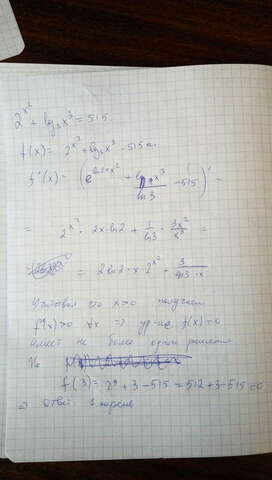 2^{x^2} + log_3 x^3 = 515
f(x) = 2^{x^2} + log_3 x^3 - 515
f'(x) = (e^{ln2·x^2} + \frac{ln x^3}{ln 3} - 515)' =
= 2^{x^2} · 2x · ln2 + \frac{1}{ln3} · \frac{3x^2}{x^3} =
= 2ln2 · x · 2^{x^2} + \frac{3}{ln3 · x}
что x>0 получаем
f'(x)>0 ∀x ⇒ ур-ие f(x)=0
имеет не более одного решения
Но
f(3) = 2^9 + 3 - 515 = 512 + 3 - 515 = 0
⇒ Ответ: 1 корень